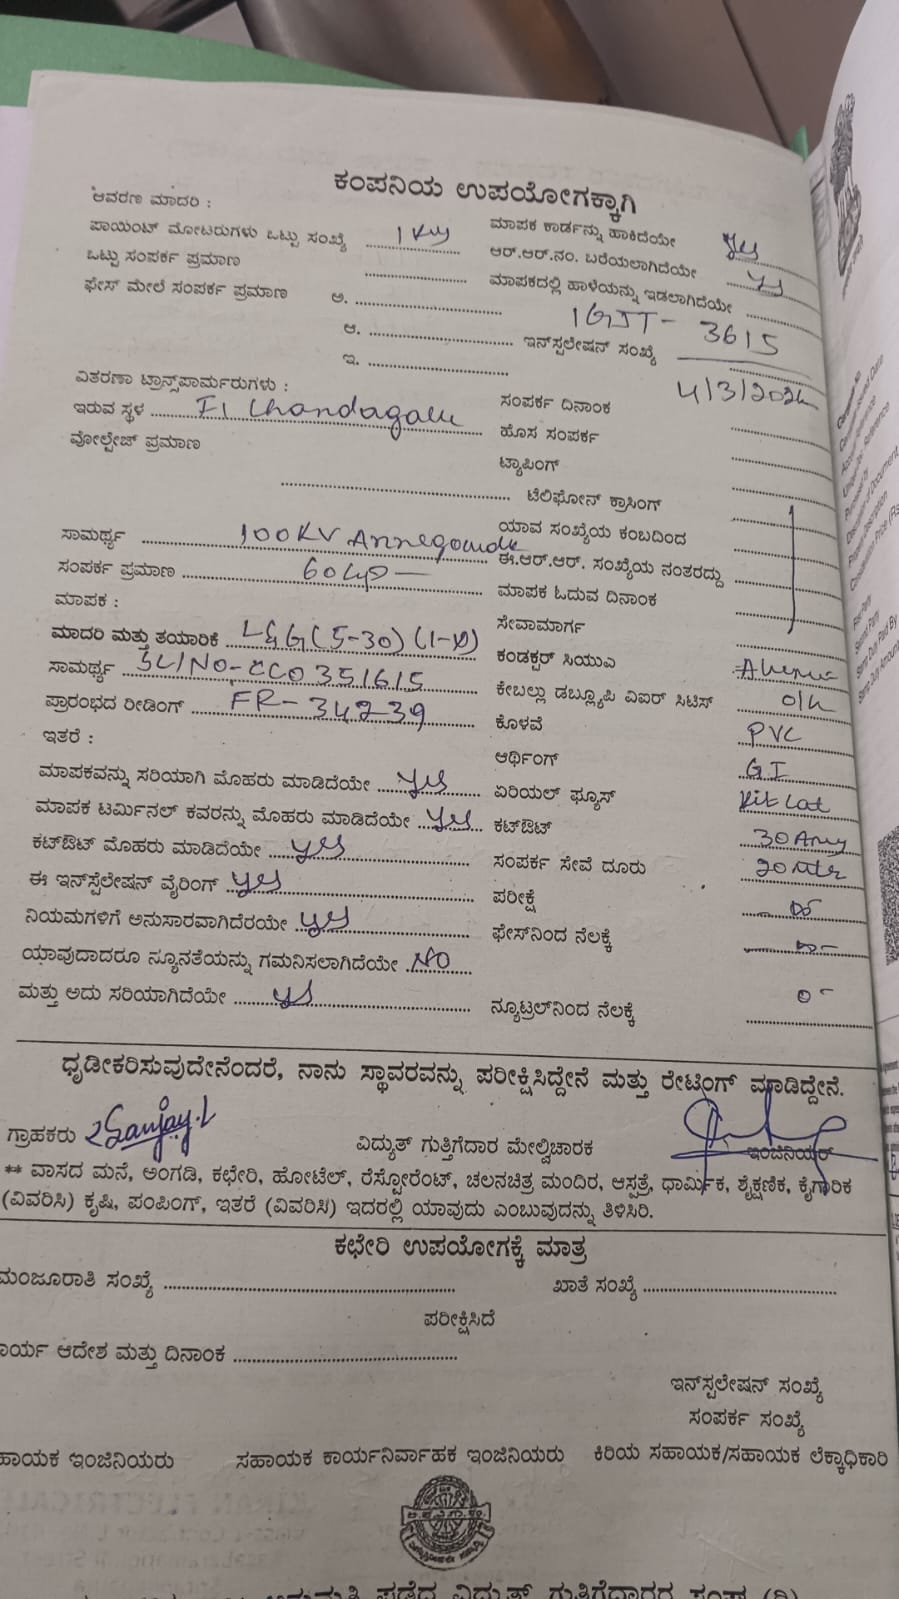 ಕಂಪನಿಯ ಉಪಯೋಗಕ್ಕಾಗಿ
ಆವರಣ ಮಾದರಿ :
ಪಾಯಿಂಟ್ ಮೋಟರುಗಳು ಒಟ್ಟು ಸಂಖ್ಯೆ 1 KW
ಒಟ್ಟು ಸಂಪರ್ಕ ಪ್ರಮಾಣ
ಫೇಸ್ ಮೇಲೆ ಸಂಪರ್ಕ ಪ್ರಮಾಣ ಅ.
ಆ.
ಇ.
ವಿತರಣಾ ಟ್ರಾನ್ಸ್‌ಪಾರ್ಮರುಗಳು :
ಇರುವ ಸ್ಥಳ Chandagalu
ವೋಲ್ಟೇಜ್ ಪ್ರಮಾಣ
ಸಾಮರ್ಥ್ಯ 100KV Annegowda
ಸಂಪರ್ಕ ಪ್ರಮಾಣ
ಮಾಪಕ :
ಮಾದರಿ ಮತ್ತು ತಯಾರಿಕೆ L&G (5-30) (1-Φ)
ಸಾಮರ್ಥ್ಯ SL/NO-CC0351615
ಪ್ರಾರಂಭದ ರೀಡಿಂಗ್ FR-34239
ಇತರೆ :
ಮಾಪಕವನ್ನು ಸರಿಯಾಗಿ ಮೊಹರು ಮಾಡಿದೆಯೇ yes
ಮಾಪಕ ಟರ್ಮಿನಲ್ ಕವರನ್ನು ಮೊಹರು ಮಾಡಿದೆಯೇ yes
ಕಟ್‌ಔಟ್ ಮೊಹರು ಮಾಡಿದೆಯೇ yes
ಈ ಇನ್‌ಸ್ಟಲೇಷನ್ ವೈರಿಂಗ್ yes
ನಿಯಮಗಳಿಗೆ ಅನುಸಾರವಾಗಿದೆರಯೇ yes
ಯಾವುದಾದರೂ ನ್ಯೂನತೆಯನ್ನು ಗಮನಿಸಲಾಗಿದೆಯೇ NO
ಮತ್ತು ಅದು ಸರಿಯಾಗಿದೆಯೇ yes
ಮಾಪಕ ಕಾರ್ಡನ್ನು ಹಾಕಿದೆಯೇ yes
ಆರ್.ಆರ್.ನಂ. ಬರೆಯಲಾಗಿದೆಯೇ yes
ಮಾಪಕದಲ್ಲಿ ಹಾಳೆಯನ್ನು ಇಡಲಾಗಿದೆಯೇ
ಇನ್‌ಸ್ಪಲೇಷನ್ ಸಂಖ್ಯೆ 3615
ಸಂಪರ್ಕ ದಿನಾಂಕ
ಹೊಸ ಸಂಪರ್ಕ
ಟ್ಯಾಪಿಂಗ್
ಟೆಲಿಫೋನ್ ಕ್ರಾಸಿಂಗ್
ಯಾವ ಸಂಖ್ಯೆಯ ಕಂಬದಿಂದ
ಈ.ಆರ್.ಆರ್. ಸಂಖ್ಯೆಯ ನಂತರದ್ದು
ಮಾಪಕ ಓದುವ ದಿನಾಂಕ
ಸೇವಾಮಾರ್ಗ
ಕಂಡಕ್ಟರ್ ಸಿಯುಎ
ಕೇಬಲ್ಲು ಡಬ್ಲ್ಯೂಪಿ ವಿಐರ್ ಸಿಟಿಸ್ O/H
ಕೊಳವೆ PVC
ಆರ್ಥಿಂಗ್ GI
ಏರಿಯಲ್ ಫ್ಯೂಸ್
ಕಟ್‌ಔಟ್ 30Amp
ಸಂಪರ್ಕ ಸೇವೆ ದೂರು 20 Mtr
ಪರೀಕ್ಷೆ
ಫೇಸ್‌ನಿಂದ ನೆಲಕ್ಕೆ
ನ್ಯೂಟ್ರಲ್‌ನಿಂದ ನೆಲಕ್ಕೆ
ಧೃಡೀಕರಿಸುವುದೇನೆಂದರೆ, ನಾನು ಸ್ಥಾವರವನ್ನು ಪರೀಕ್ಷಿಸಿದ್ದೇನೆ ಮತ್ತು ರೇಟಿಂಗ್ ಮಾಡಿದ್ದೇನೆ.
ಗ್ರಾಹಕರು Sanjay.L ವಿದ್ಯುತ್ ಗುತ್ತಿಗೆದಾರ ಮೇಲ್ವಿಚಾರಕ ಇಂಜಿನಿಯರ್
** ವಾಸದ ಮನೆ, ಅಂಗಡಿ, ಕಛೇರಿ, ಹೋಟೆಲ್, ರೆಸ್ಟೋರೆಂಟ್, ಚಲನಚಿತ್ರ ಮಂದಿರ, ಆಸ್ಪತ್ರೆ, ಧಾರ್ಮಿಕ, ಶೈಕ್ಷಣಿಕ, ಕೈಗಾರಿಕ
(ವಿವರಿಸಿ) ಕೃಷಿ, ಪಂಪಿಂಗ್, ಇತರೆ (ವಿವರಿಸಿ) ಇದರಲ್ಲಿ ಯಾವುದು ಎಂಬುವುದನ್ನು ತಿಳಿಸಿರಿ.
ಕಛೇರಿ ಉಪಯೋಗಕ್ಕೆ ಮಾತ್ರ
ಮಂಜೂರಾತಿ ಸಂಖ್ಯೆ ಖಾತೆ ಸಂಖ್ಯೆ
ಪರೀಕ್ಷಿಸಿದೆ
ರ್ಯ ಆದೇಶ ಮತ್ತು ದಿನಾಂಕ
ಇನ್‌ಸ್ಪಲೇಷನ್ ಸಂಖ್ಯೆ
ಸಂಪರ್ಕ ಸಂಖ್ಯೆ
ಹಾಯಕ ಇಂಜಿನಿಯರು ಸಹಾಯಕ ಕಾರ್ಯನಿರ್ವಾಹಕ ಇಂಜಿನಿಯರು ಕಿರಿಯ ಸಹಾಯಕ/ಸಹಾಯಕ ಲೆಕ್ಕಾಧಿಕಾರಿ